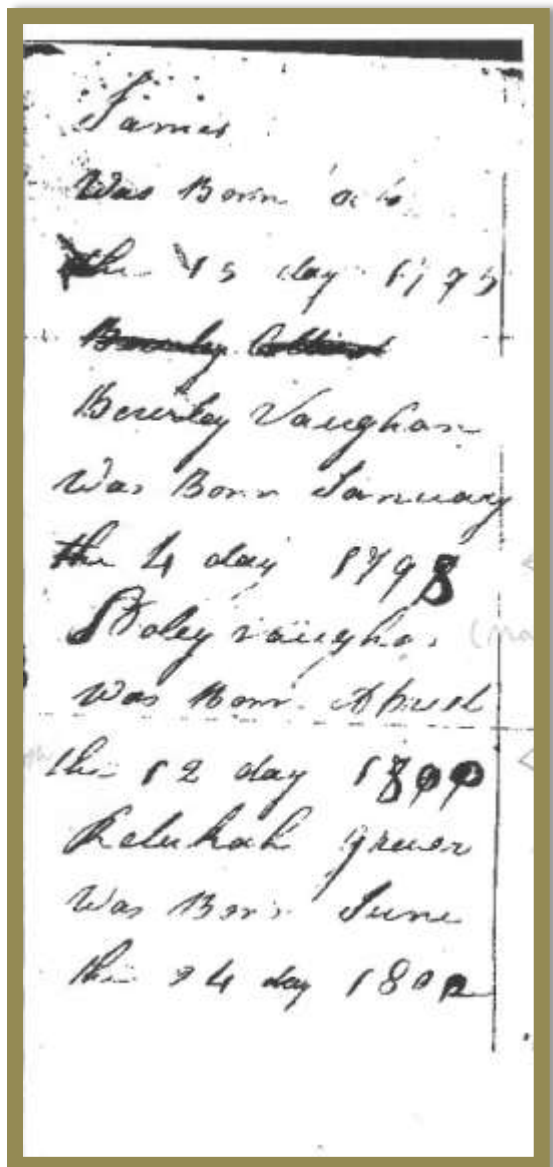 James
Was Born
the 15 day 1795
Beverley Vaughan
Was Born January
the 4 day 1798
Vaughan
was Born Aprul
the 12 day 1800
Was Born June
the 24 day 1802